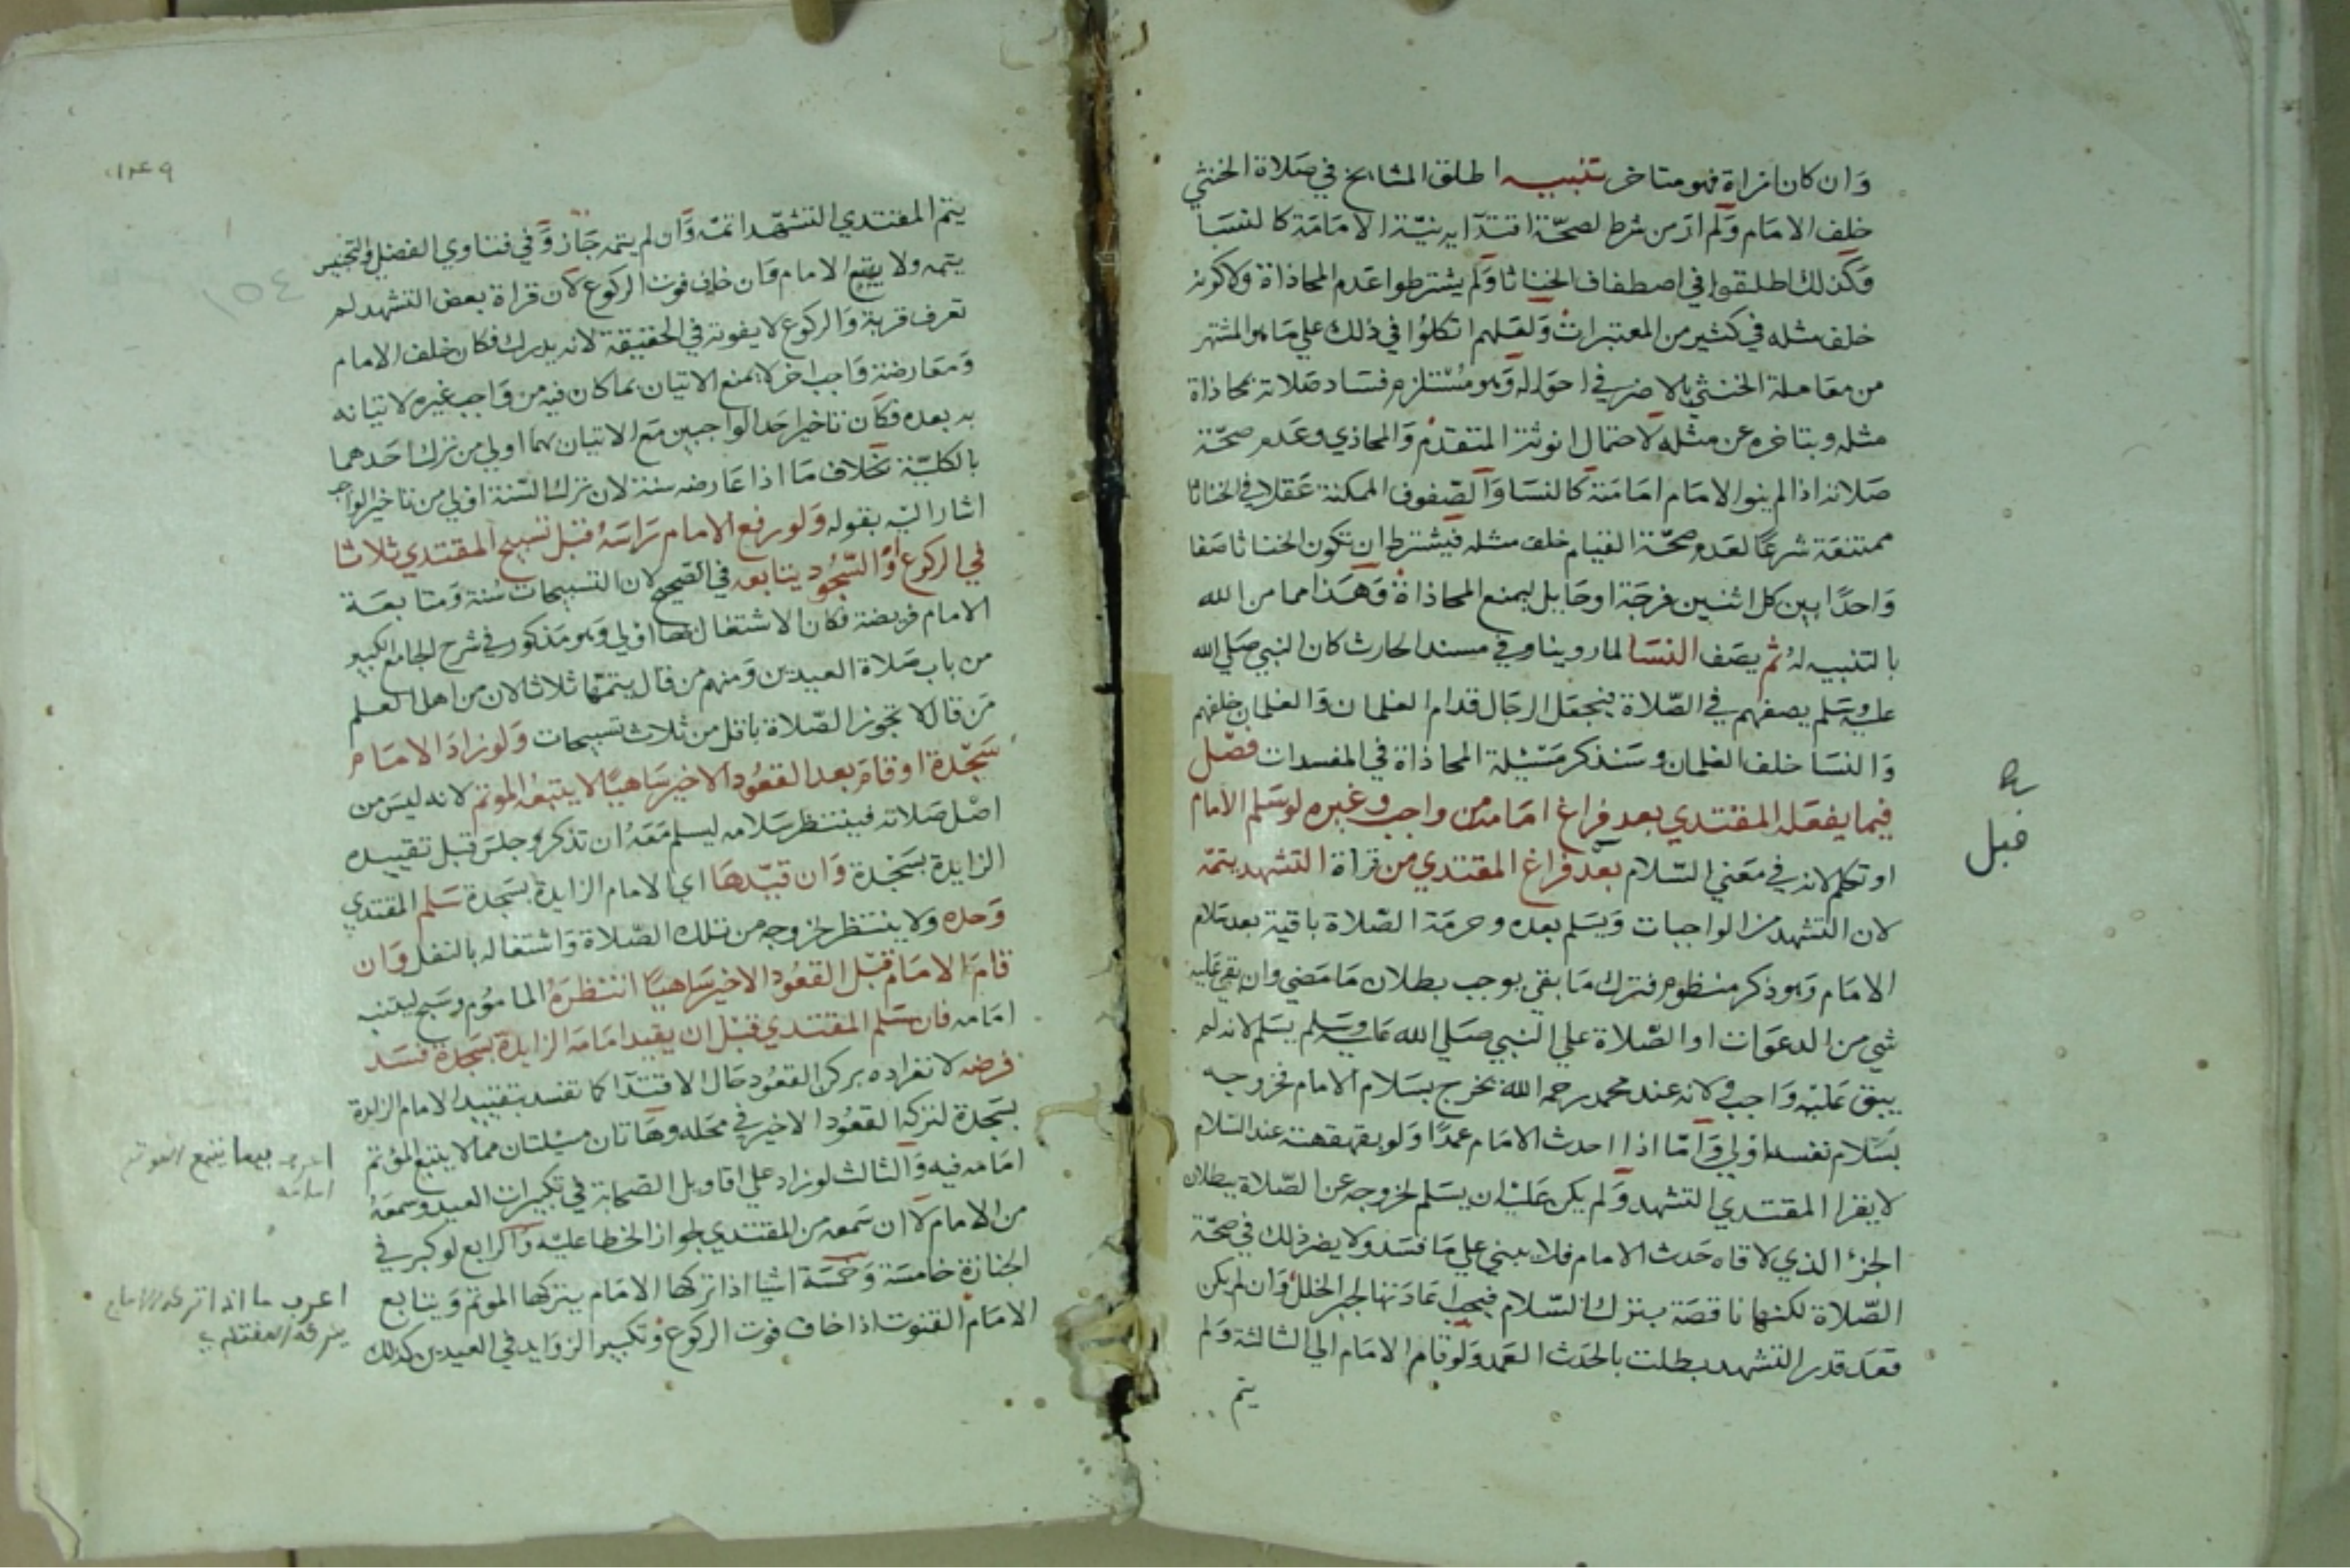 وان كان نزاة فهو متاخر تنبيه اطلق المشايخ في صلاة الخنثي
خلف الامام ولم ار من شرط لصحة اقتدآيه نية الامامة كالنسا
وكذلك اطلقوا في اصطفاف الخناثا ولم يشترطوا عدم المحاذاة ولا كونه
خلف مثله في كثير من المعتبرات ولعلهم اتكلوا في ذلك علي ما هو المشتهر
من معاملة الخنثي بالاضر في احواله وهو مستلزم فساد صلاته بمحاذاة
مثله وبتاخره عن مثله لاحتمال انوثة المتقدم والمحاذي وعدم صحة
صلاته اذا لم ينو الامام امامته كالنسا والصفوف الممكنة عقلا في الخناثا
ممتنعة شرعا لعدم صحة القيام خلف مثله فيشترط ان تكون الخناثا صفا
واحدا بين كل اثنين فرجة او حايل ليمنع المحاذاة وهذا مما من الله
بالتنبيه له ثم يصف النسا لما روينا وفي مسند الحارث كان النبي صلي الله
عليه وسلم يصفهم في الصلاة فيجعل الرجال قدام الغلمان والغلمان خلفهم
والنسا خلف الغلمان وسنذكر مسئلة المحاذاة في المفسدات فصل
فيما يفعله المقتدي بعد فراغ امامه من واجب وغيره لو سلم الامام
او تكلم لانه في معني السلام بعد فراغ المقتدي من قراة التشهد يتمه
لان التشهد من الواجبات ويسلم بعده وحرمة الصلاة باقية بعد سلام
الامام وهو ذكر منظوم فترك ما بقي يوجب بطلان ما مضي وان بقي عليه
شي من الدعوات او الصلاة علي النبي صلي الله عليه وسلم يسلم لانه لم
يبق عليه واجب ولانه عند محمد رحمه الله يخرج بسلام الامام فخروجه
بسلام نفسه اولي واما اذا احدث الامام عمدا ولو بقهقهته عند السلام
لا يقرا المقتدي التشهد ولم يكن عليه ان يسلم لخروجه عن الصلاة ببطلان
الجزء الذي لاقاه حدث الامام فلا يبني علي ما فسد ولا يضر ذلك في صحة
الصلاة لكنها ناقصة بترك السلام فيجب اعادتها لجبر الخلل وان لم يكن
قعد قدر التشهد بطلت بالحدث العمد ولو قام الامام الي الثالثة ولم
يتم
قبل
١٤٩
١٥٤
يتم المقتدي التشهد اتمه وان لم يتمه جاز وفي فتاوي الفضلي والتجنيس
يتمه ولا يتبع الامام وان خاف فوت الركوع لان قراة بعض التشهد لم
تعرف قربة والركوع لا يفوته في الحقيقة لانه يدرك فكان خلف الامام
ومعارضة واجب اخر لا يمنع الاتيان بما كان فيه من واجب غيره لاتيانه
به بعده فكان تاخير احد الواجبين مع الاتيان بهما اولي من ترك احدهما
بالكلية بخلاف ما اذا عارضه سنة لان ترك السنة اولي من تاخير الواجب
اشار اليه بقوله ولو رفع الامام راسه قبل تسبيح المقتدي ثلاثا
في الركوع او السجود يتابعه في الصحيح لان التسبيحات سنة ومتابعة
الامام فريضة فكان الاشتغال بها اولي وهو مذكور في شرح الجامع الكبير
من باب صلاة العيدين ومنهم من قال يتمها ثلاثا لان من اهل العلم
من قال لا تجوز الصلاة باقل من ثلاث تسبيحات ولو زاد الامام
سجدة او قام بعد القعود الاخير ساهيا لا يتبعه الموتم لانه ليس من
اصل صلاته فينتظر سلامه ليسلم معه ان تذكر وجلس قبل تقييده
الزايدة بسجدة وان قيدها اي الامام الزايدة بسجدة سلم المقتدي
وحده ولا ينتظر لخروجه من تلك الصلاة واشتغاله بالنفل وان
قام الامام قبل القعود الاخير ساهيا انتظره الماموم وسبح ليتنبه
امامه فان سلم المقتدي قبل ان يقيد امامه الزايدة بسجدة فسد
فرضه لانفراده بركن القعود حال الاقتدآ كما تفسد بتقييد الامام الزايدة
بسجدة لتركه القعود الاخير في محله وهاتان مسئلتان مما لا يتبع المؤتم
امامه فيه والثالث لو زاد علي اقاويل الصحابة في تكبيرات العيد وسمعه
من الامام لا ان سمعه من المقتدي لجواز الخطا عليه والرابع لو كبر في
الجنازة خامسة وخمسة اشيا اذا تركها الامام يتركها الموتم ويتابع
الامام القنوت اذا خاف فوت الركوع وتكبير الزوايد في العيدين كذلك
امامه